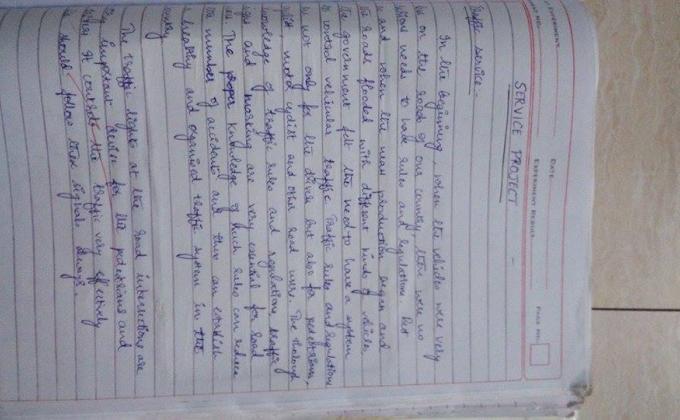 EXPERIMENT
DATE
EXPERIMENT RESULT
PAGE NO.
SERVICE PROJECT
Traffic service.
In the beginning, when the vehicles were very
on the roads of our country there were no
need to have rules and regulations. But
and when the mass production began and
the roads flooded with different kinds of vehicles
the government felt the need to have a system
to control vehicular traffic. Traffic rules and regulations
not only for the driver but also for pedestrians,
motor cyclist and other road users. The thorough
knowledge of traffic rules and regulations, traffic
and marking are very essential for road
The proper knowledge of such rules can reduce
number of accidents and thus can establish
a healthy and organised traffic system in the
country
The traffic lights at the road intersections are
important device for the pedestrians and
it controls the traffic very effectively
should follow these signals always.